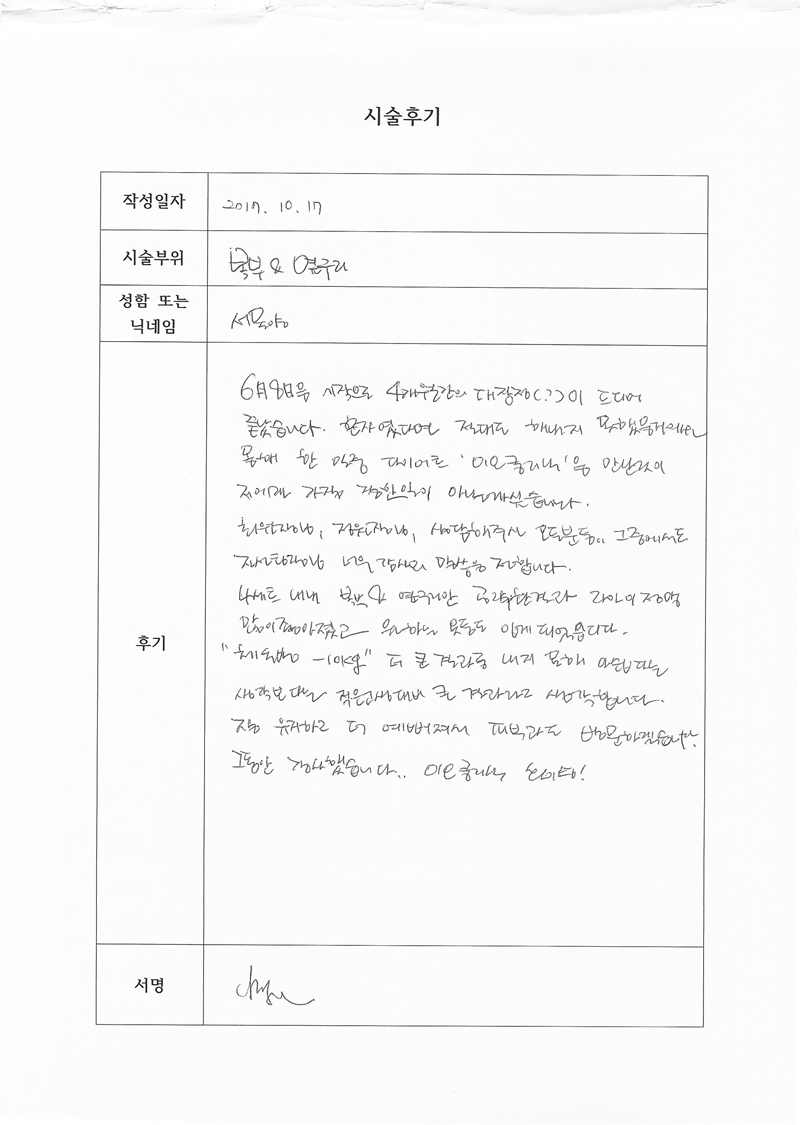 시술후기
작성일자 2017. 10. 17
시술부위 복부 & 옆구리
성함 또는
닉네임 서목양
후기
6月8日을 시작으로 4개월간의 대장정(?)이 드디어
끝났습니다. 혼자였다면 절대로 해내지 못했을거예요
한 다이어트 '미오클리닉'을 만난것이
저에게 가장 잘한일이 아닌가싶습니다.
회원장님, 정원장님, 상담해주신 모든분들.. 그중에서도
너무 감사의 말씀을 전합니다.
4세트 내내 복부 & 옆구리만 공략한결과 라인이 정말
많이 좋아졌고 원하는 옷들도 입게 되었습니다.
"체지방 -10kg" 더 큰 결과를 내지 못해 아쉽다는
생각보다는 적은고생대비 큰 결과라고 생각합니다.
잘 유지하고 더 예뻐져서 피부과도 방문하겠습니다.
그동안 감사했습니다.. 미오클리닉 화이팅!
서명